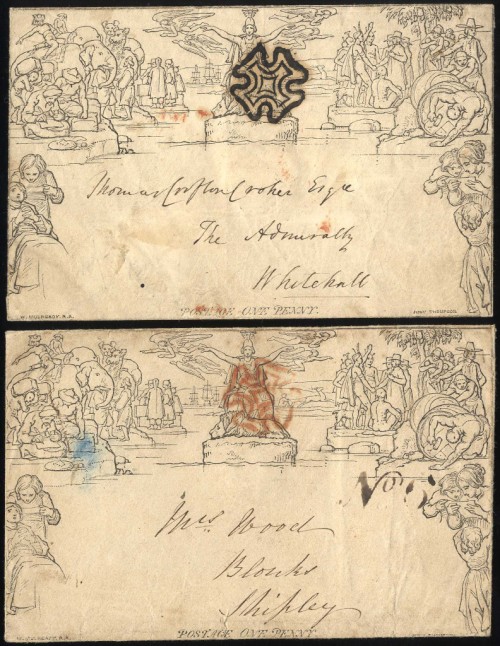 Thomas Crofton Croker Esqre
The Admiralty
Whitehall
W. MULREADY. R.A.
JOHN THOMPSON
POSTAGE ONE PENNY.
No. 
Mrs. Wood
Blonks
Shipley
W. MULREADY. R.A.
POSTAGE ONE PENNY.